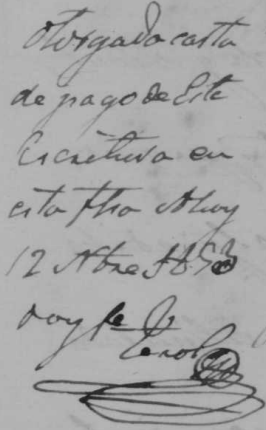 Otorgada carta
de pago de Esta
Escritura en
esta fha Hoy
12 Nbre 185
doy fe